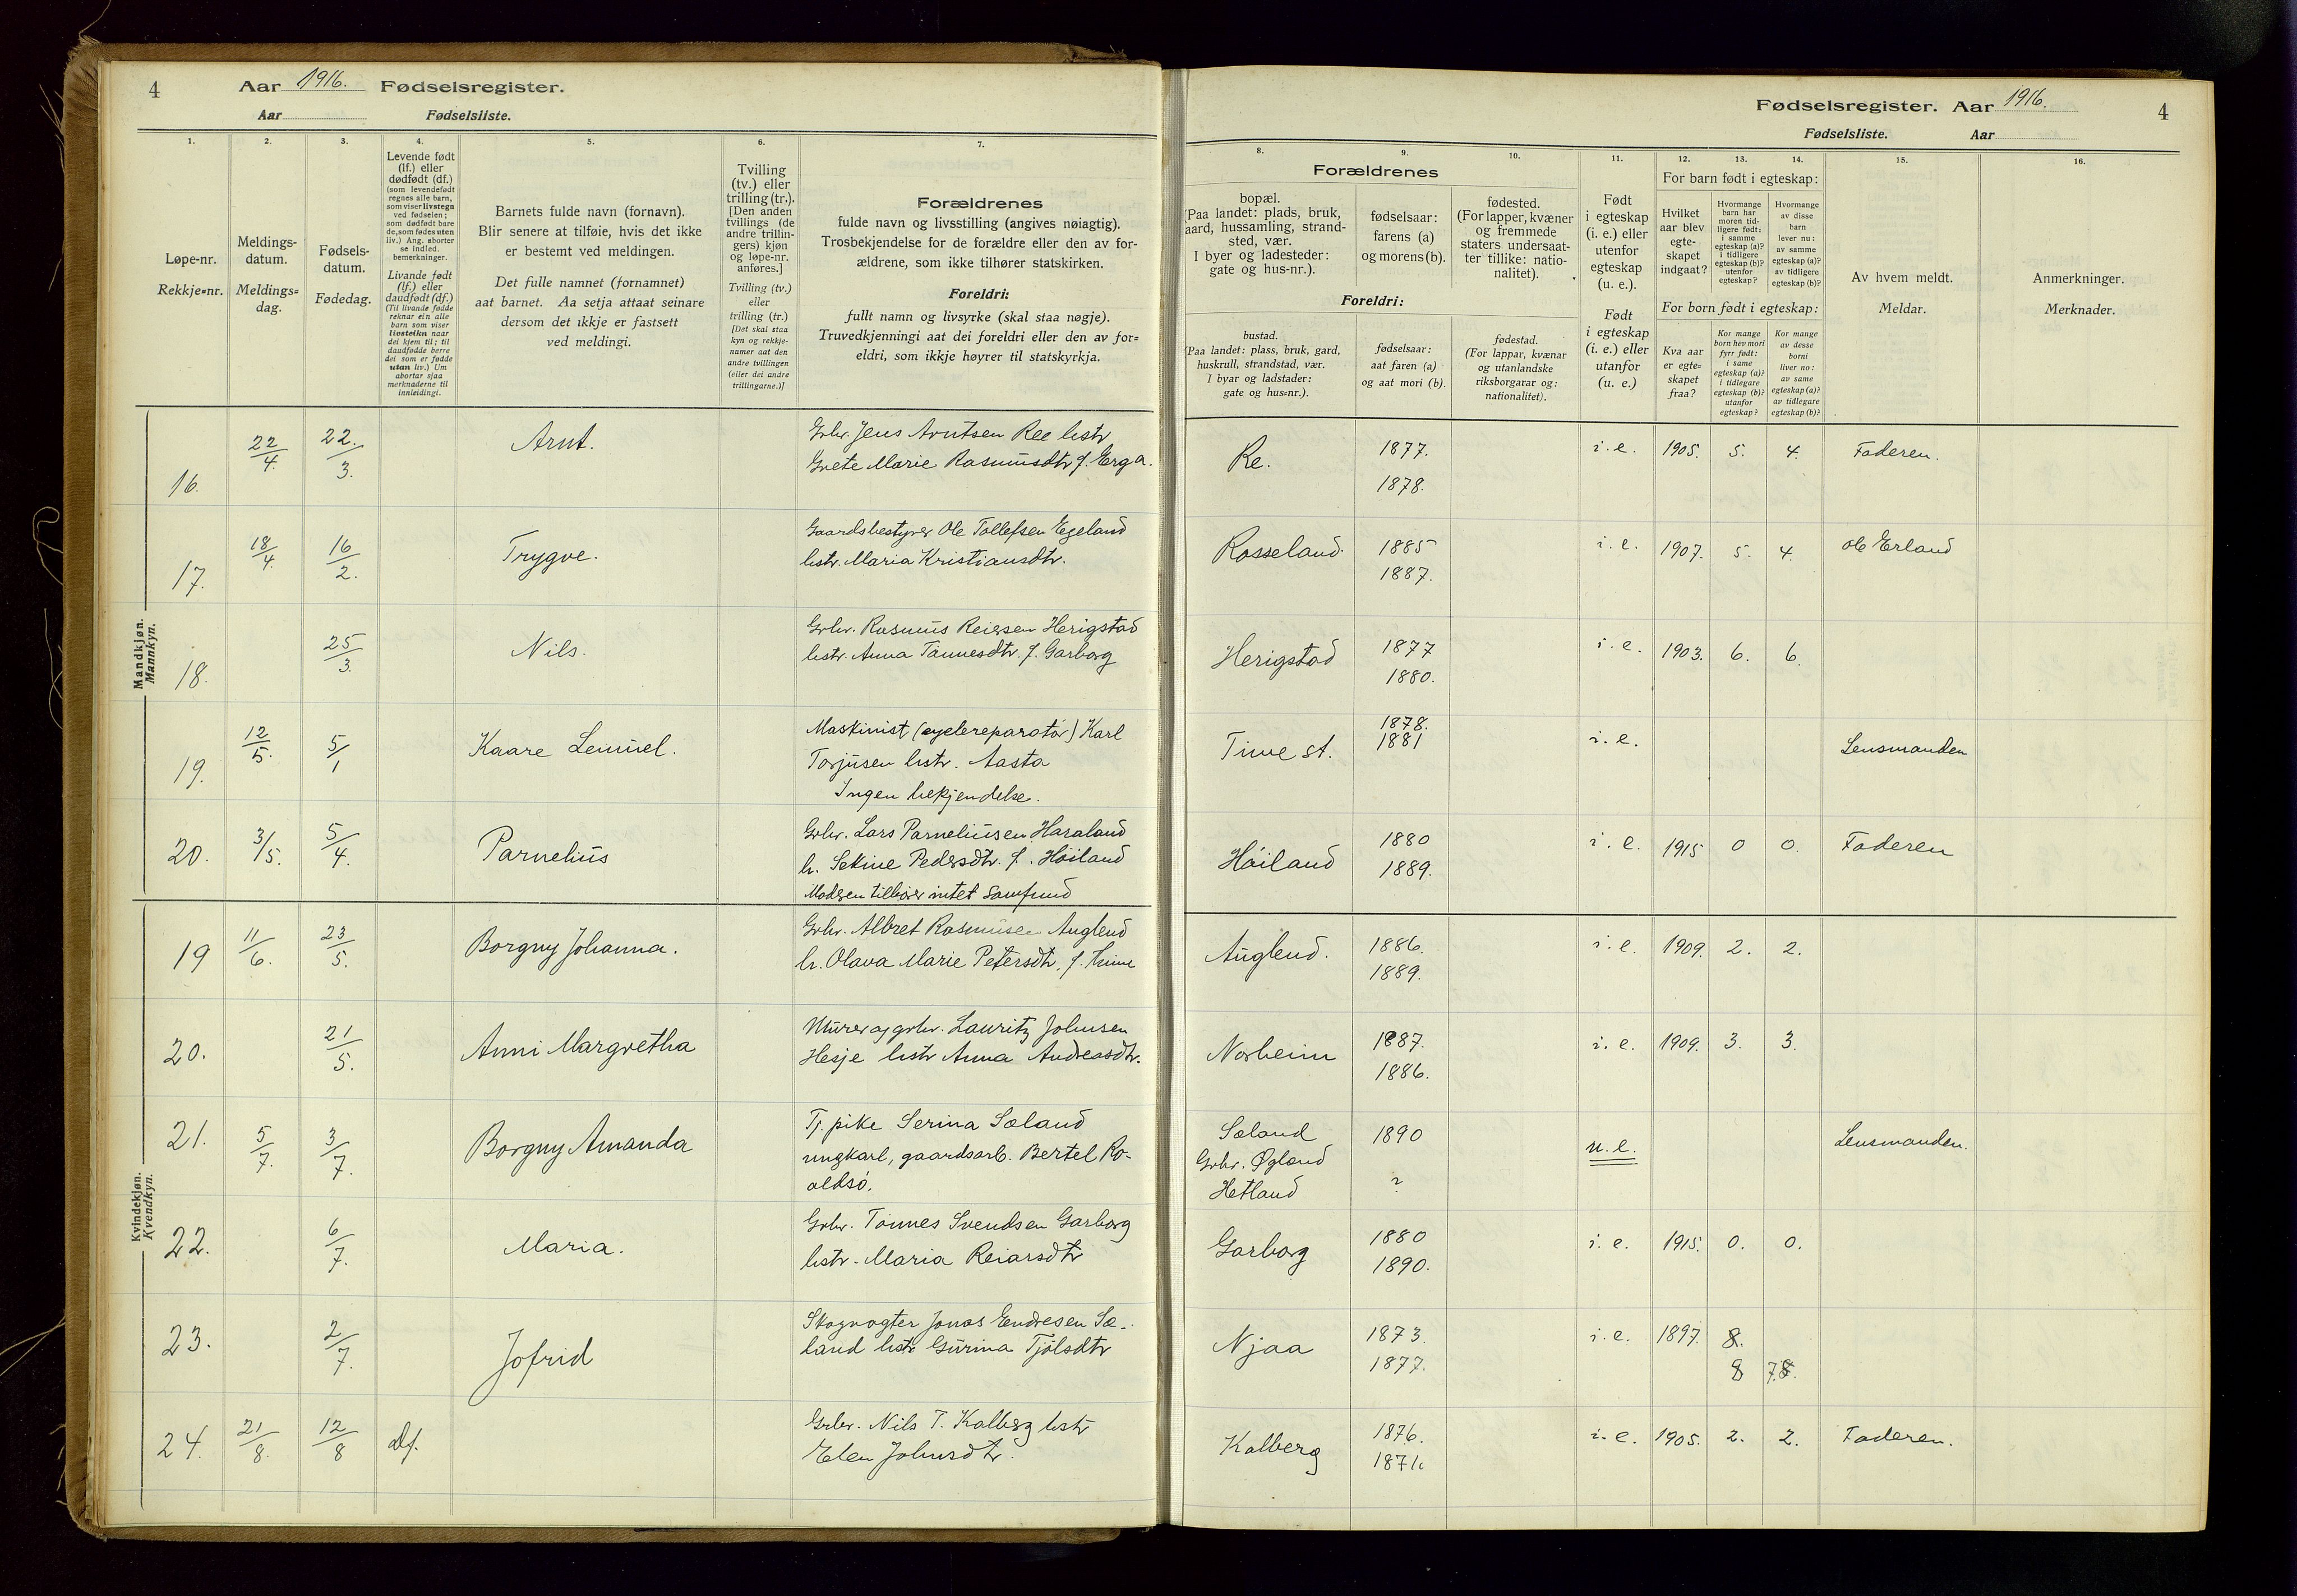 4 Aar 1916. Fødselsregister.
Aar Fødselsliste.
1.
Løpe-nr.
Rekkje=nr.
2.
Meldings-
datum.
Meldings=
dag.
3.
Fødsels-
datum.
Fødedag.
4.
Levende født
(lf.) eller
dødfødt (df.)
(som levendefødt
regnes alle barn,
som viser livstegn
ved fødselen;
som dødfødt bare
de, som fødes uten
liv.) Ang. aborter
se indled.
bemerkninger.
Livande født
(lf.) eller
daudfødt (df.)
(Til livande fødde
reknar ein alle
barn som viser
livsteikn naar
dei kjem til; til
daudfødde berre
dei som er fødde
utan liv.) Um
abortar sjaa
merknaderne til
innleidingi.
5.
Barnets fulde navn (fornavn).
Blir senere at tilføie, hvis det ikke
er bestemt ved meldingen.
Det fulle namnet (fornamnet)
aat barnet. Aa setja attaat seinare
dersom det ikkje er fastsett
ved meldingi.
6.
Tvilling
(tv.) eller
trilling (tr.).
[Den anden
tvillings (de
andre trillin-
gers) kjøn
og løpe-nr.
anføres.]
Tvilling (tv.)
eller
trilling (tr.)
[Det skal staa
kyn og rekkje-
numer aat den
andre tvillingen
(eller dei andre
trillingarne.)]
7.
Forældrenes
fulde navn og livsstilling (angives nøiagtig).
Trosbekjendelse for de forældre eller den av for-
ældrene, som ikke tilhører statskirken.
Foreldri:
fullt namn og livsyrke (skal staa nøgje).
Truvedkjenningi aat dei foreldri eller den av for=
eldri, som ikkje høyrer til statskyrkja.
Mandkjøn.
Mannkyn.
16. 22/4. 22./3. Arnt.
Grbr. Jens Arntsen Ree hstr
Grete Marie Rasmusdtr f. Erga.
17. 18/4. 16/2. Trygve.
Gaardsbestyrer Ole Tollefsen Egeland
hstr. Maria Kristiansdtr.
18. 25/3. Nils.
Grbr. Rasmus Reiersen Herigstad
hstr. Anna Tønnesdtr. f. Garborg
19. 12/5. 5/1 Kaare Lemuel.
Maskinist (cyclereparatør) Karl
Torjusen hstr. Aasta
Ingen bekjendelse.
20. 3/5. 5/4. Parnelius
Grbr. Lars Parneliusen Haraland
h. Sekine Pedersdtr. f. Høiland
Moderen tilhører intet samfund
Kvindekjøn.
Kvendkyn.
19 11/6. 23/5. Borgny Johanna.
Grbr. Albret Rasmusen Auglend
h. Olava Marie Petersdtr. f. Time
20. 21/5. Anni Margretha
Murer og grbr. Lauritz Johnsen
Hesje hstr Anna Andreasdtr.
21. 5/7. 3/7. Borgny Amanda
Tj. pike Serina Sæland
ungkarl, gaardsarb. Bertel Ro-
aldsø.
22. 6/7. Maria.
Grbr. Tønnes Svendsen Garborg
hstr. Maria Reiarsdtr
23. 2/7. Jofrid
Skogvogter Jonas Endresen Sæ-
land hstr Gurina Tjølsdtr
24. 21/8. 12/8 Df.
Grbr. Nils T. Kalberg hstr
Elen Johnsdtr.
Fødselsregister. Aar 1916. 4
Fødselsliste. Aar
Forældrenes
8.
bopæl.
(Paa landet: plads, bruk,
aard, hussamling, strand-
sted, vær.
I byer og ladesteder:
gate og hus-nr.).
Foreldri:
bustad.
(Paa landet: plass, bruk, gard,
huskrull, strandstad, vær.
I byar og ladstader:
gate og hus=nr.).
9.
fødselsaar:
farens (a)
og morens (b).
fødselsaar:
aat faren (a)
og aat mori (b).
10.
fødested.
(For lapper, kvæner
og fremmede
staters undersaat-
ter tillike: natio-
nalitet).
fødestad.
(For lappar, kvænar
og utanlandske
riksborgarar og:
nationalitet).
11.
Født
i egteskap
(i. e.) eller
utenfor
egteskap
(u. e.).
Født
i egteskap
(i. e.) eller
utanfor
(u. e.)
For barn født i egteskap:
12.
Hvilket
aar blev
egte-
skapet
indgaat?
For born født i egteskap:
Kva aar
er egte=
skapet
fraa?
13.
Hvormange
barn har
moren tid-
ligere født:
i samme
egteskap (a)?
i tidligere
egteskap (b)?
utenfor
egteskap?
Kor mange
born hev mori
fyrr født:
i same
egteskap (a)?
i tidlegare
egteskap (b)?
utanfor
egteskap?
14.
Hvormange
av disse
barn
lever nu:
av samme
egteskap (a)?
av tidligere
egteskap (b)?
Kor mange
av desse
borni
liver no:
av same
egteskap (a)?
av tidlegare
egteskap (b)?
15.
Av hvem meldt.
Meldar.
16.
Anmerkninger.
Merknader.
Re. 1877. 1878. i. e. 1905. 5. 4. Faderen.
Rosseland. 1885 1887. i. e. 1907. 5. 4. Ole Erland
Herigstad 1877 1880. i. e. 1903. 6. 6.
Time st. 1878. 1881 i. e. Lensmanden
Høiland 1880 1889. i. e. 1915 0 0. Faderen
Auglend. 1886. 1889. i. e. 1909. 2. 2.
Norheim 1887. 1886. i. e. 1909. 3. 3.
Sæland 1890 u. e. Lensmanden.
Grbr. Øgland
Hetland ?
Garborg 1880 1890. i. e. 1915. 0. 0.
Njaa 1873. 1877. i. e. 1897. 8.
8 7.
Kalberg 1876. 1871. i. e. 1905. 2. 2. Faderen.